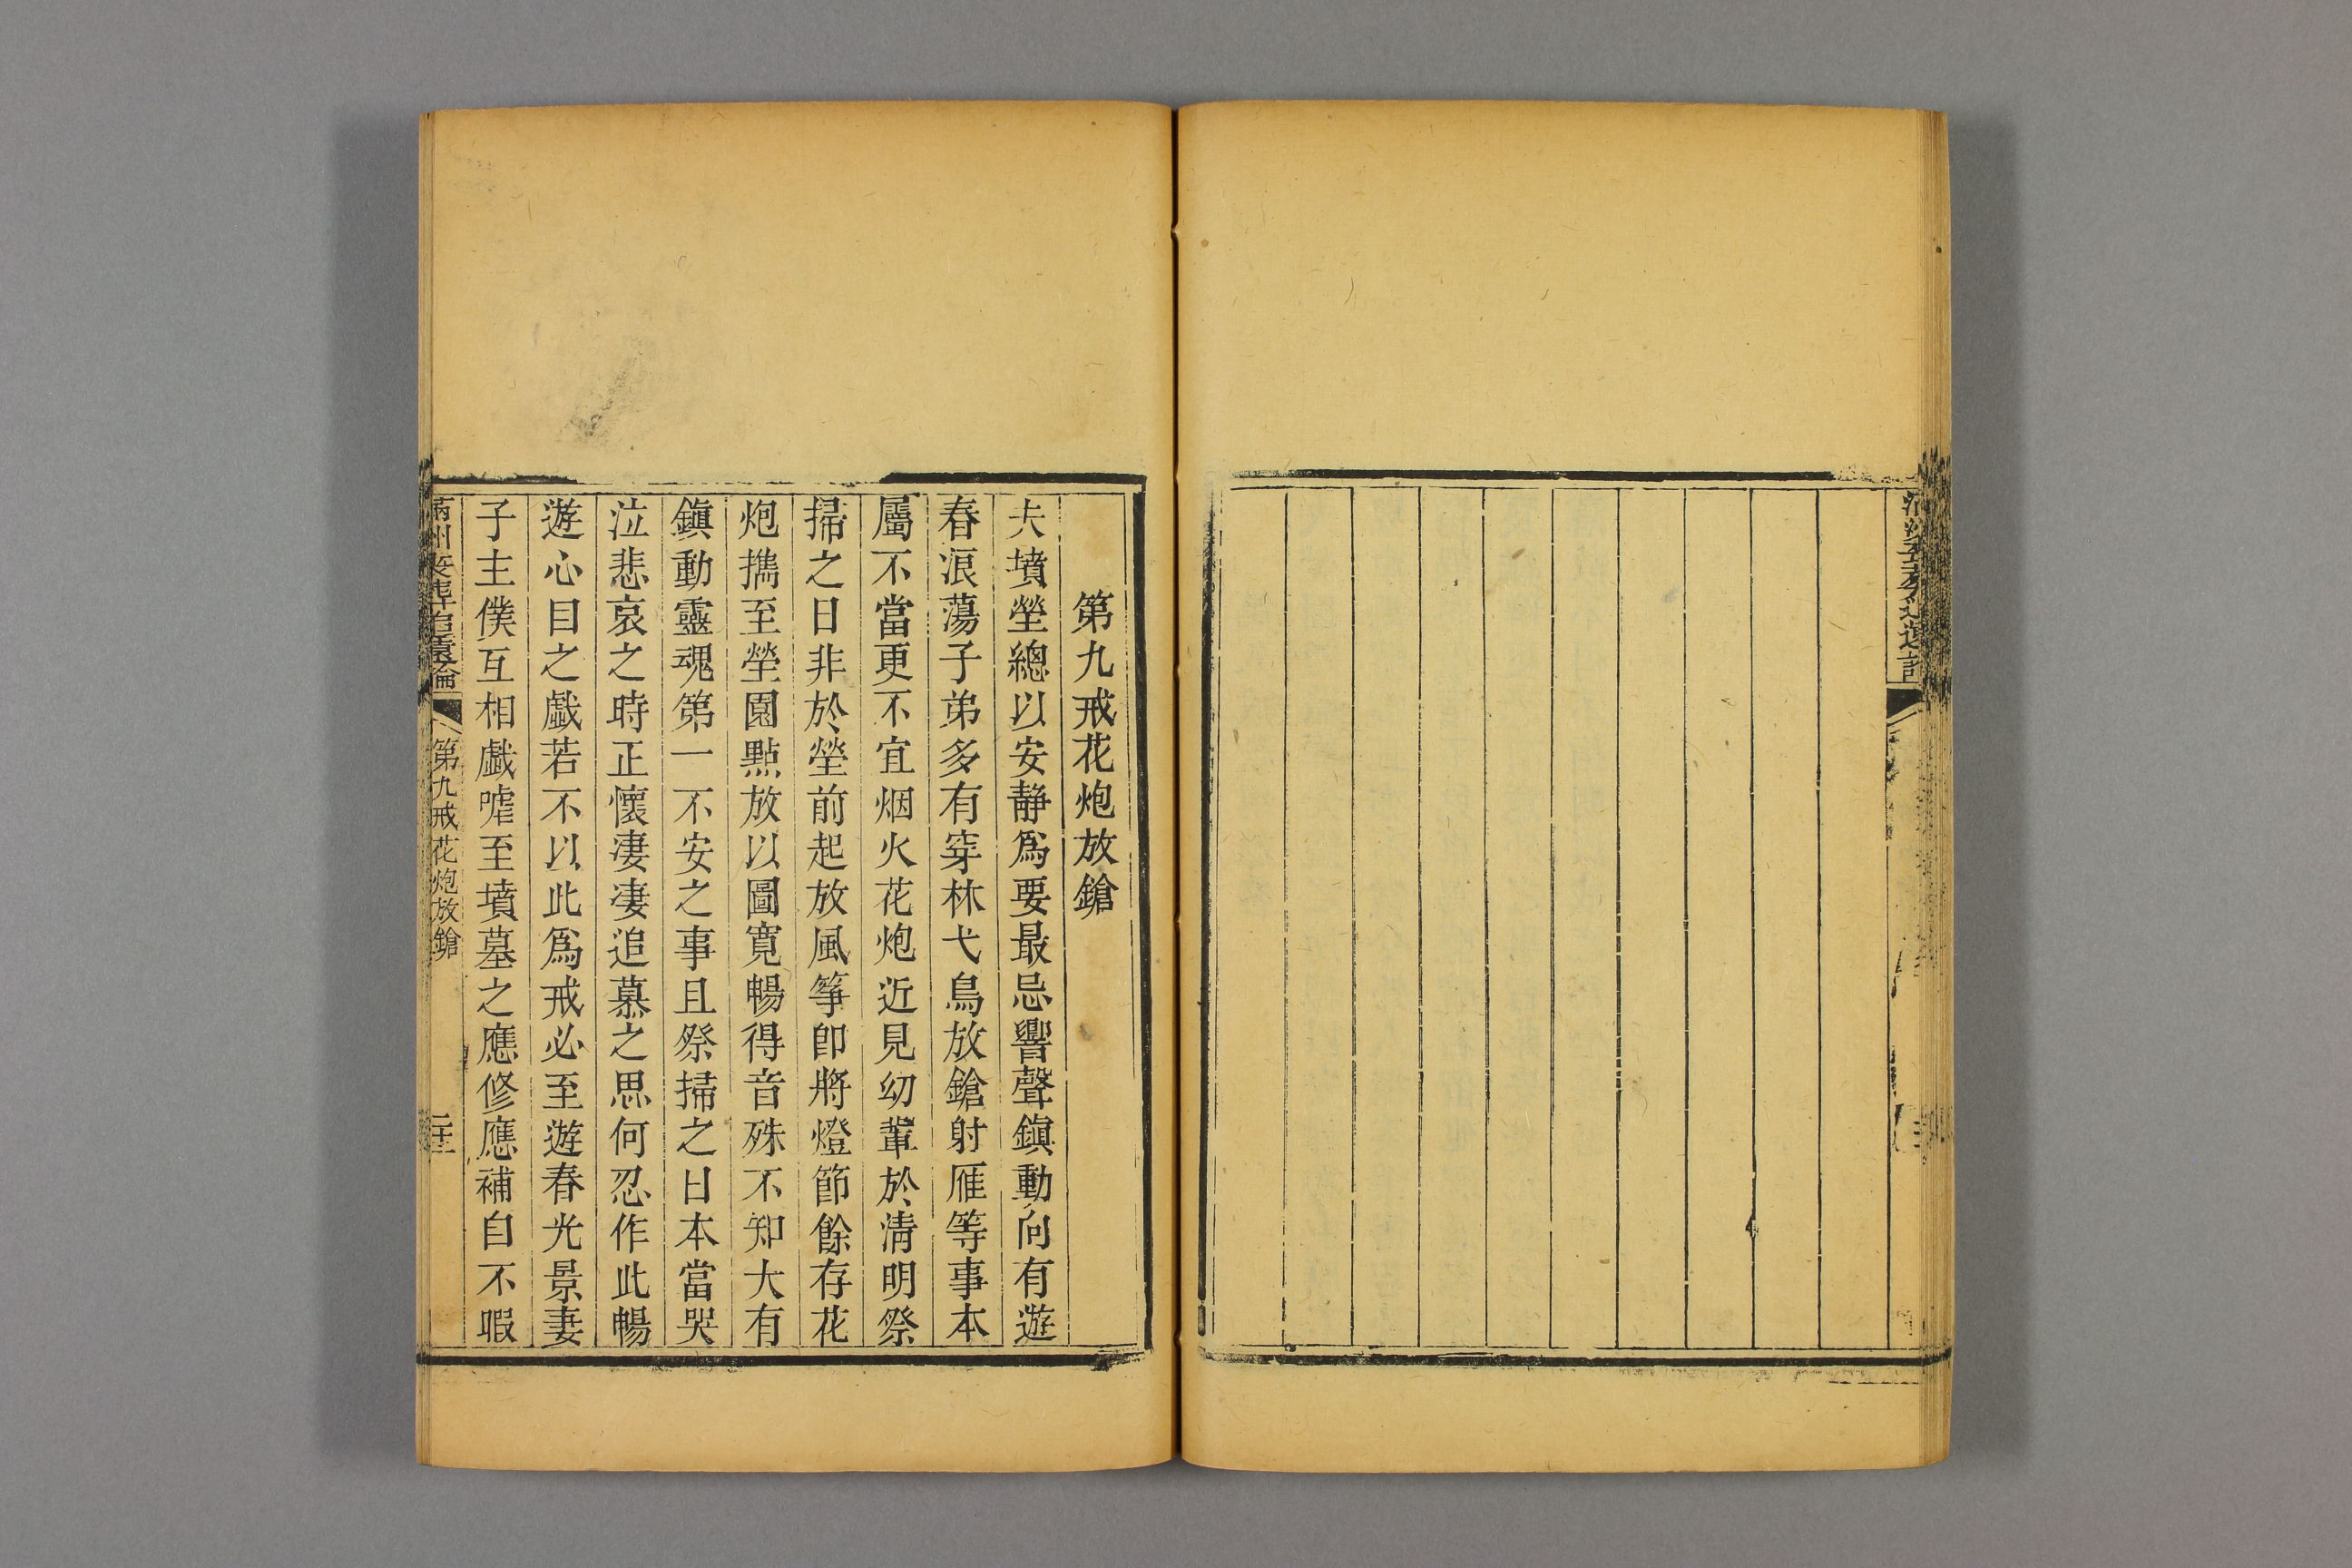 第九戒花炮放鎗
夫墳塋總以安静爲要最忌響聲鎮動向有遊
春浪蕩子弟多有穿林弋鳥放鎗射雁等事本
屬不當更不宜烟火花炮近見幼輩於清明祭
掃之日非於塋前起放風箏卽將燈節餘存花
炮攜至塋園點放以圖寛暢得音殊不知大有
鎮動靈魂第一不安之事且祭掃之日本當哭
泣悲哀之時正懷淒淒追慕之思何忍作此暢
遊心目之戱若不以此爲戒必至遊春光景妻
子主僕互相戱謔至墳墓之應修應補自不暇
第九戒花炮放鎗